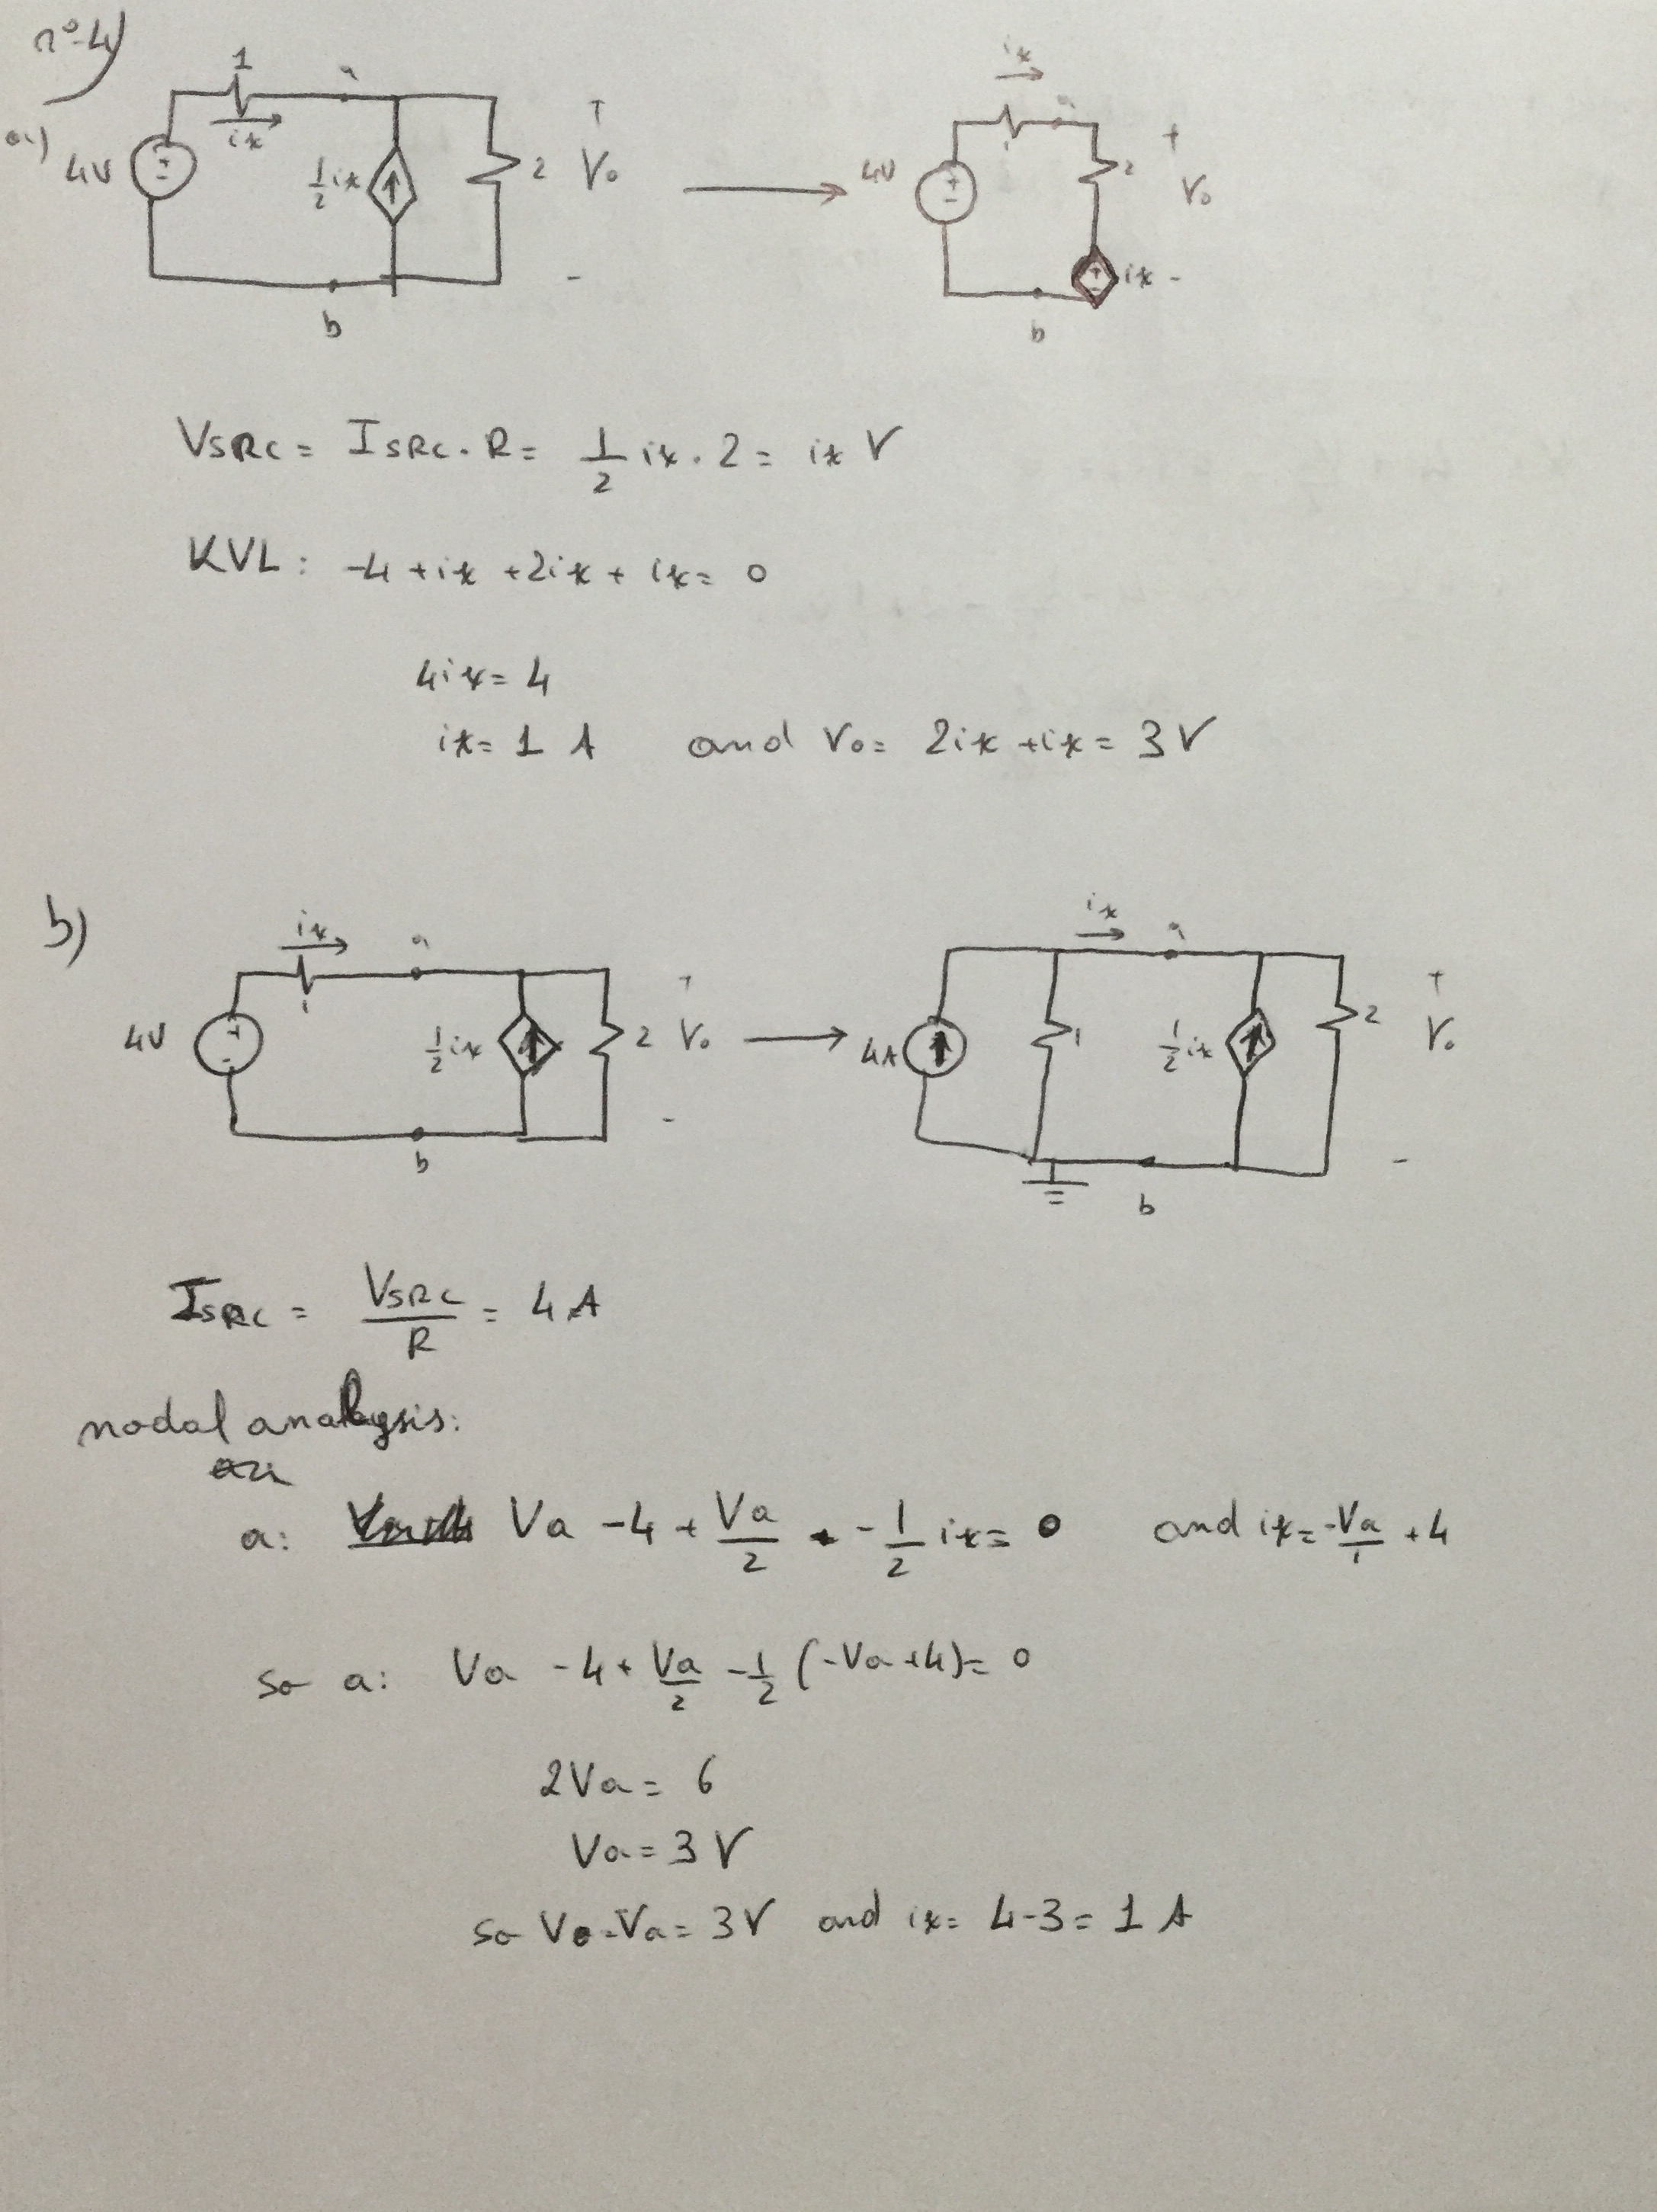 nº4)
a)
1
a
ix
4V
+
-
1/2 ix
2
+
Vo
-
b
ix
a
1
4V
+
-
2
+
Vo
+
-
ix
-
b
VSRC = ISRC . R = 1/2 ix . 2 = ix V
KVL: -4 + ix + 2ix + ix = 0
4ix = 4
ix = 1 A and Vo = 2ix + ix = 3 V
b)
ix
a
1
4V
+
-
1/2 ix
2
+
Vo
-
b
ix
a
4A
1
1/2 ix
2
+
Vo
-
b
ISRC = VSRC/R = 4 A
nodal analysis:
a: Va - 4 + Va/2 - 1/2 ix = 0 and ix = -Va/1 + 4
so a: Va - 4 + Va/2 - 1/2 (-Va + 4) = 0
2Va = 6
Va = 3 V
so Vo = Va = 3V and ix = 4 - 3 = 1 A